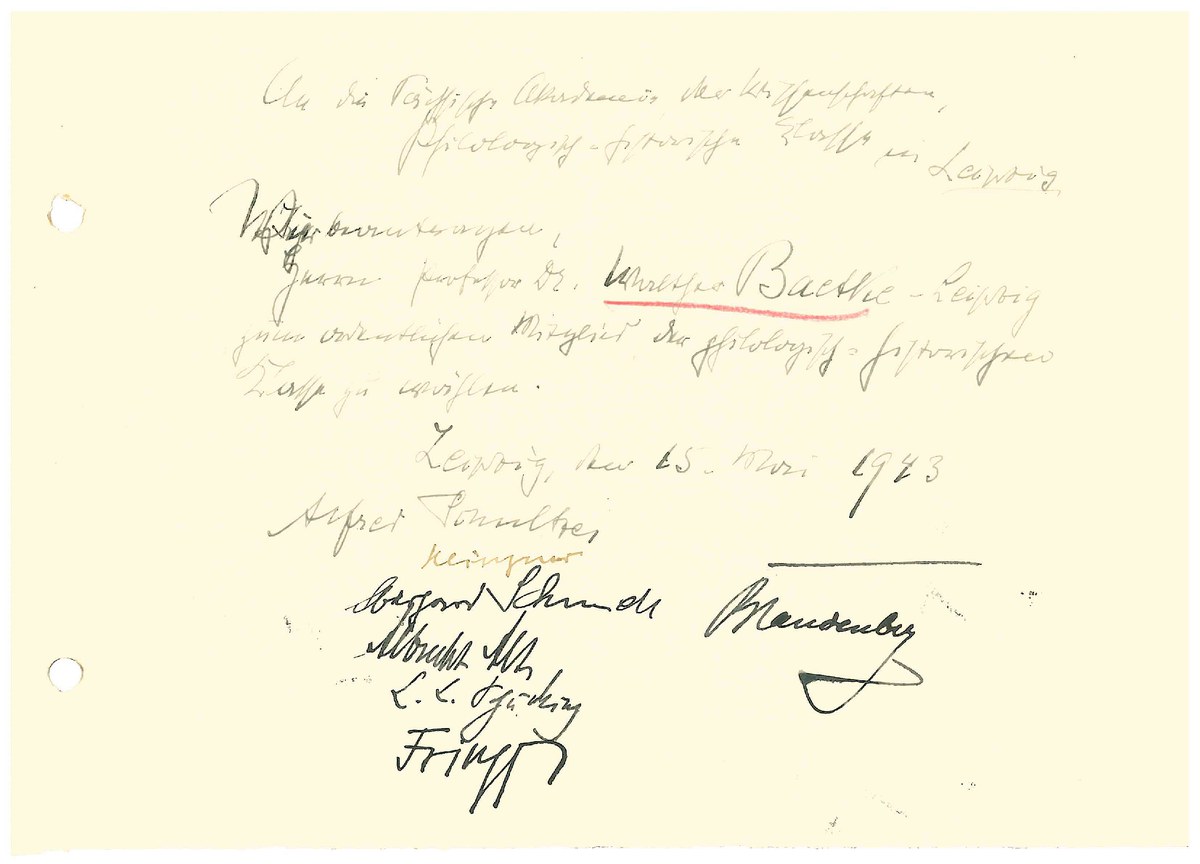 An die Sächsische Akademie der Wissenschaften,
Philologisch-historische Klasse in Leipzig.
Wir beantragen,
Herrn Professor Dr. Walther Baetke - Leipzig
zum ordentlichen Mitglied der philologisch-historischen
Klasse zu wählen.
Leipzig, den 15. Mai 1943
Alfred Schultze
Klingner
Eberhard Schmidt
Brandenburg
Albrecht Alt
L. L. Schücking
Frings